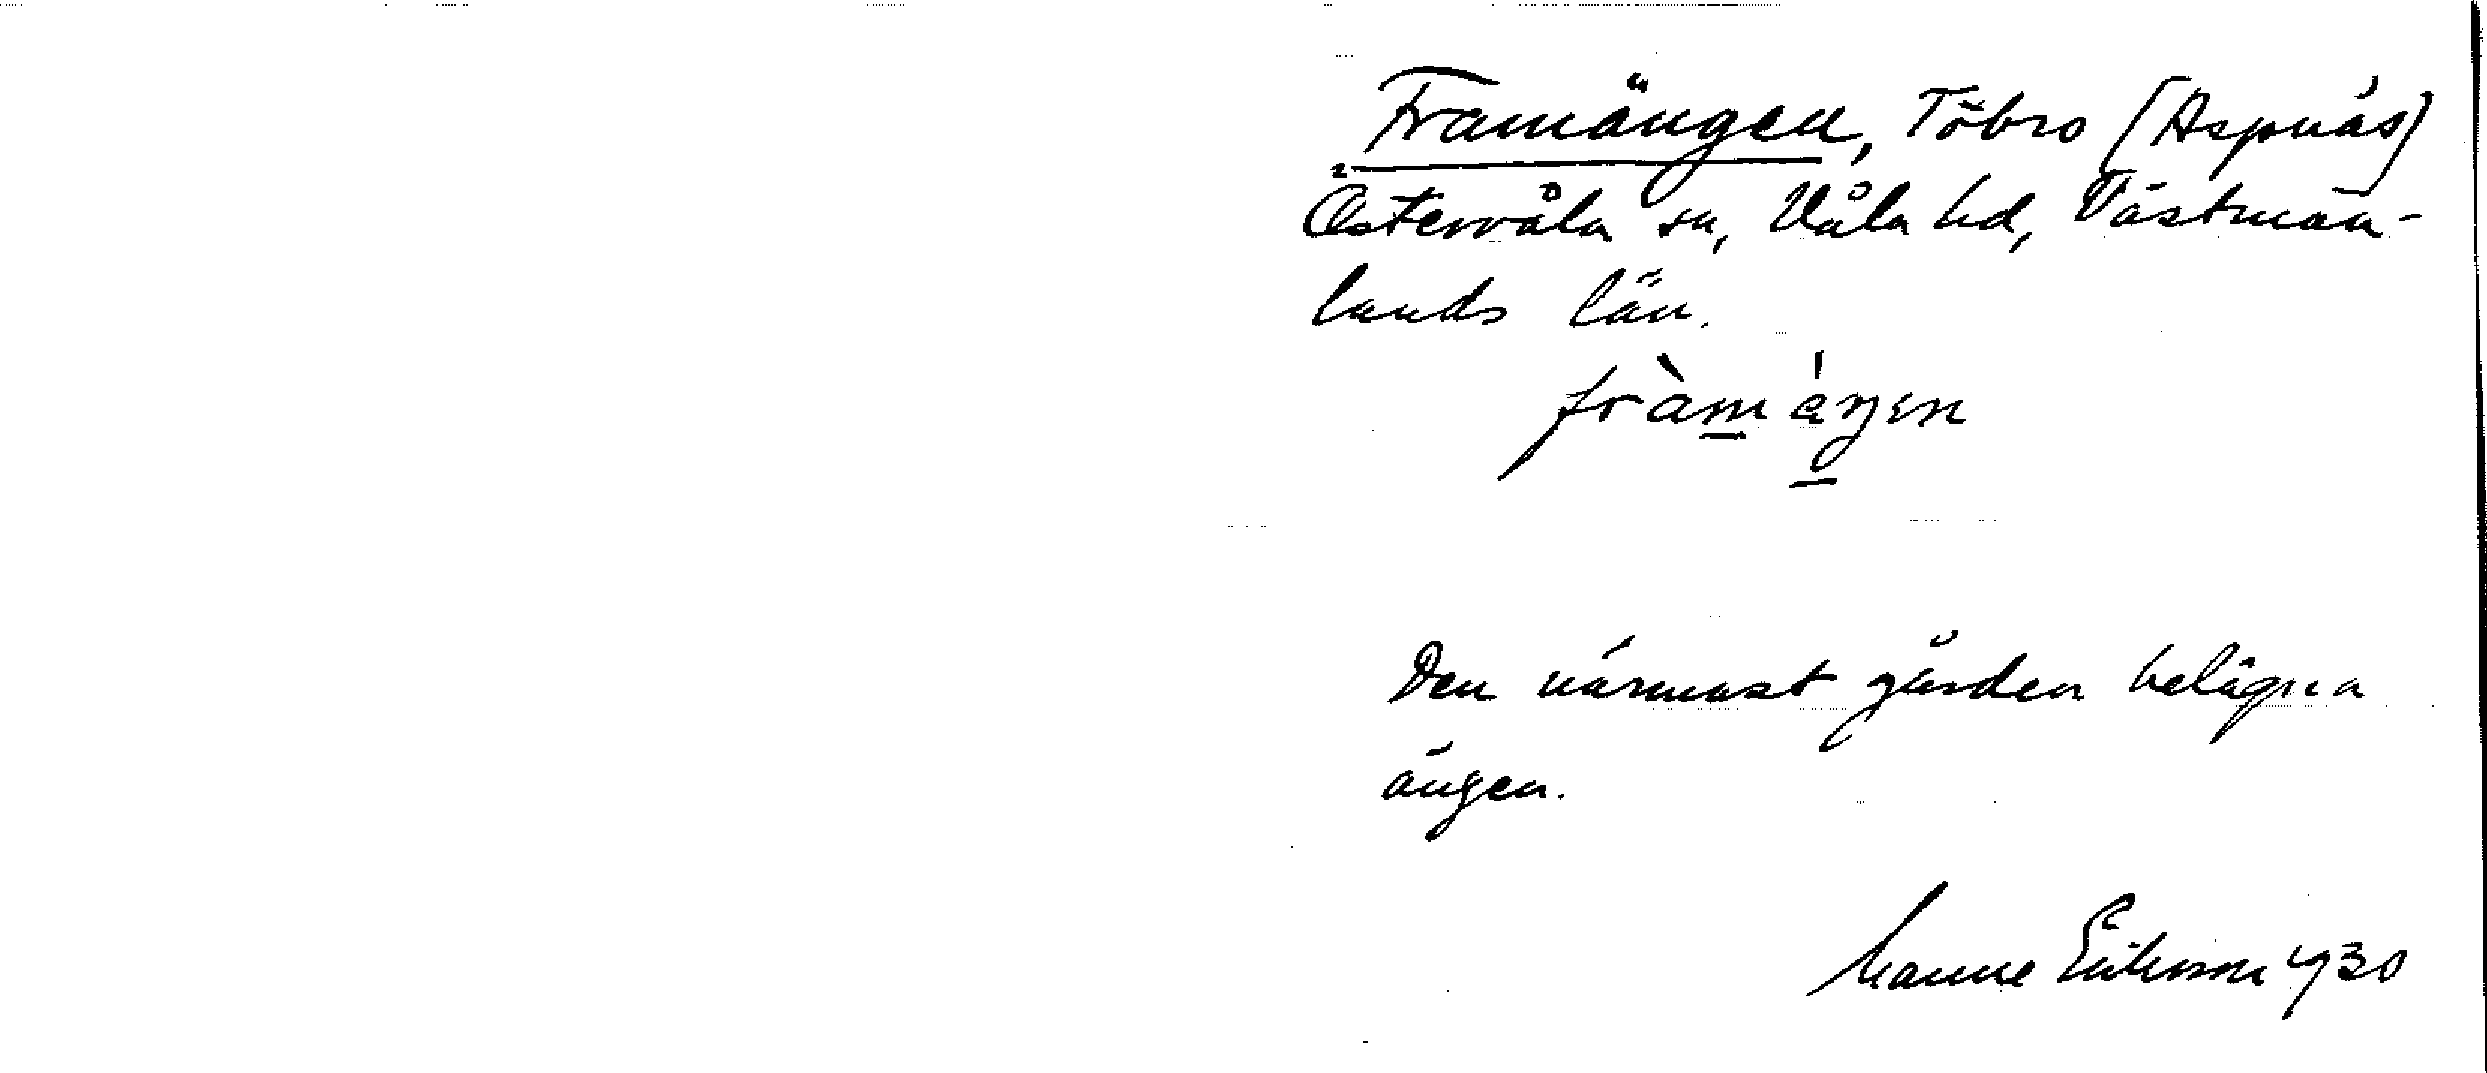 Framängen, Töbro (Aspnäs)
Östervåla sn, Våla hd, Västman-
lands län.
fràmáŋen
Den närmast gården belägna
ängen.
Manne Eriksson 1930